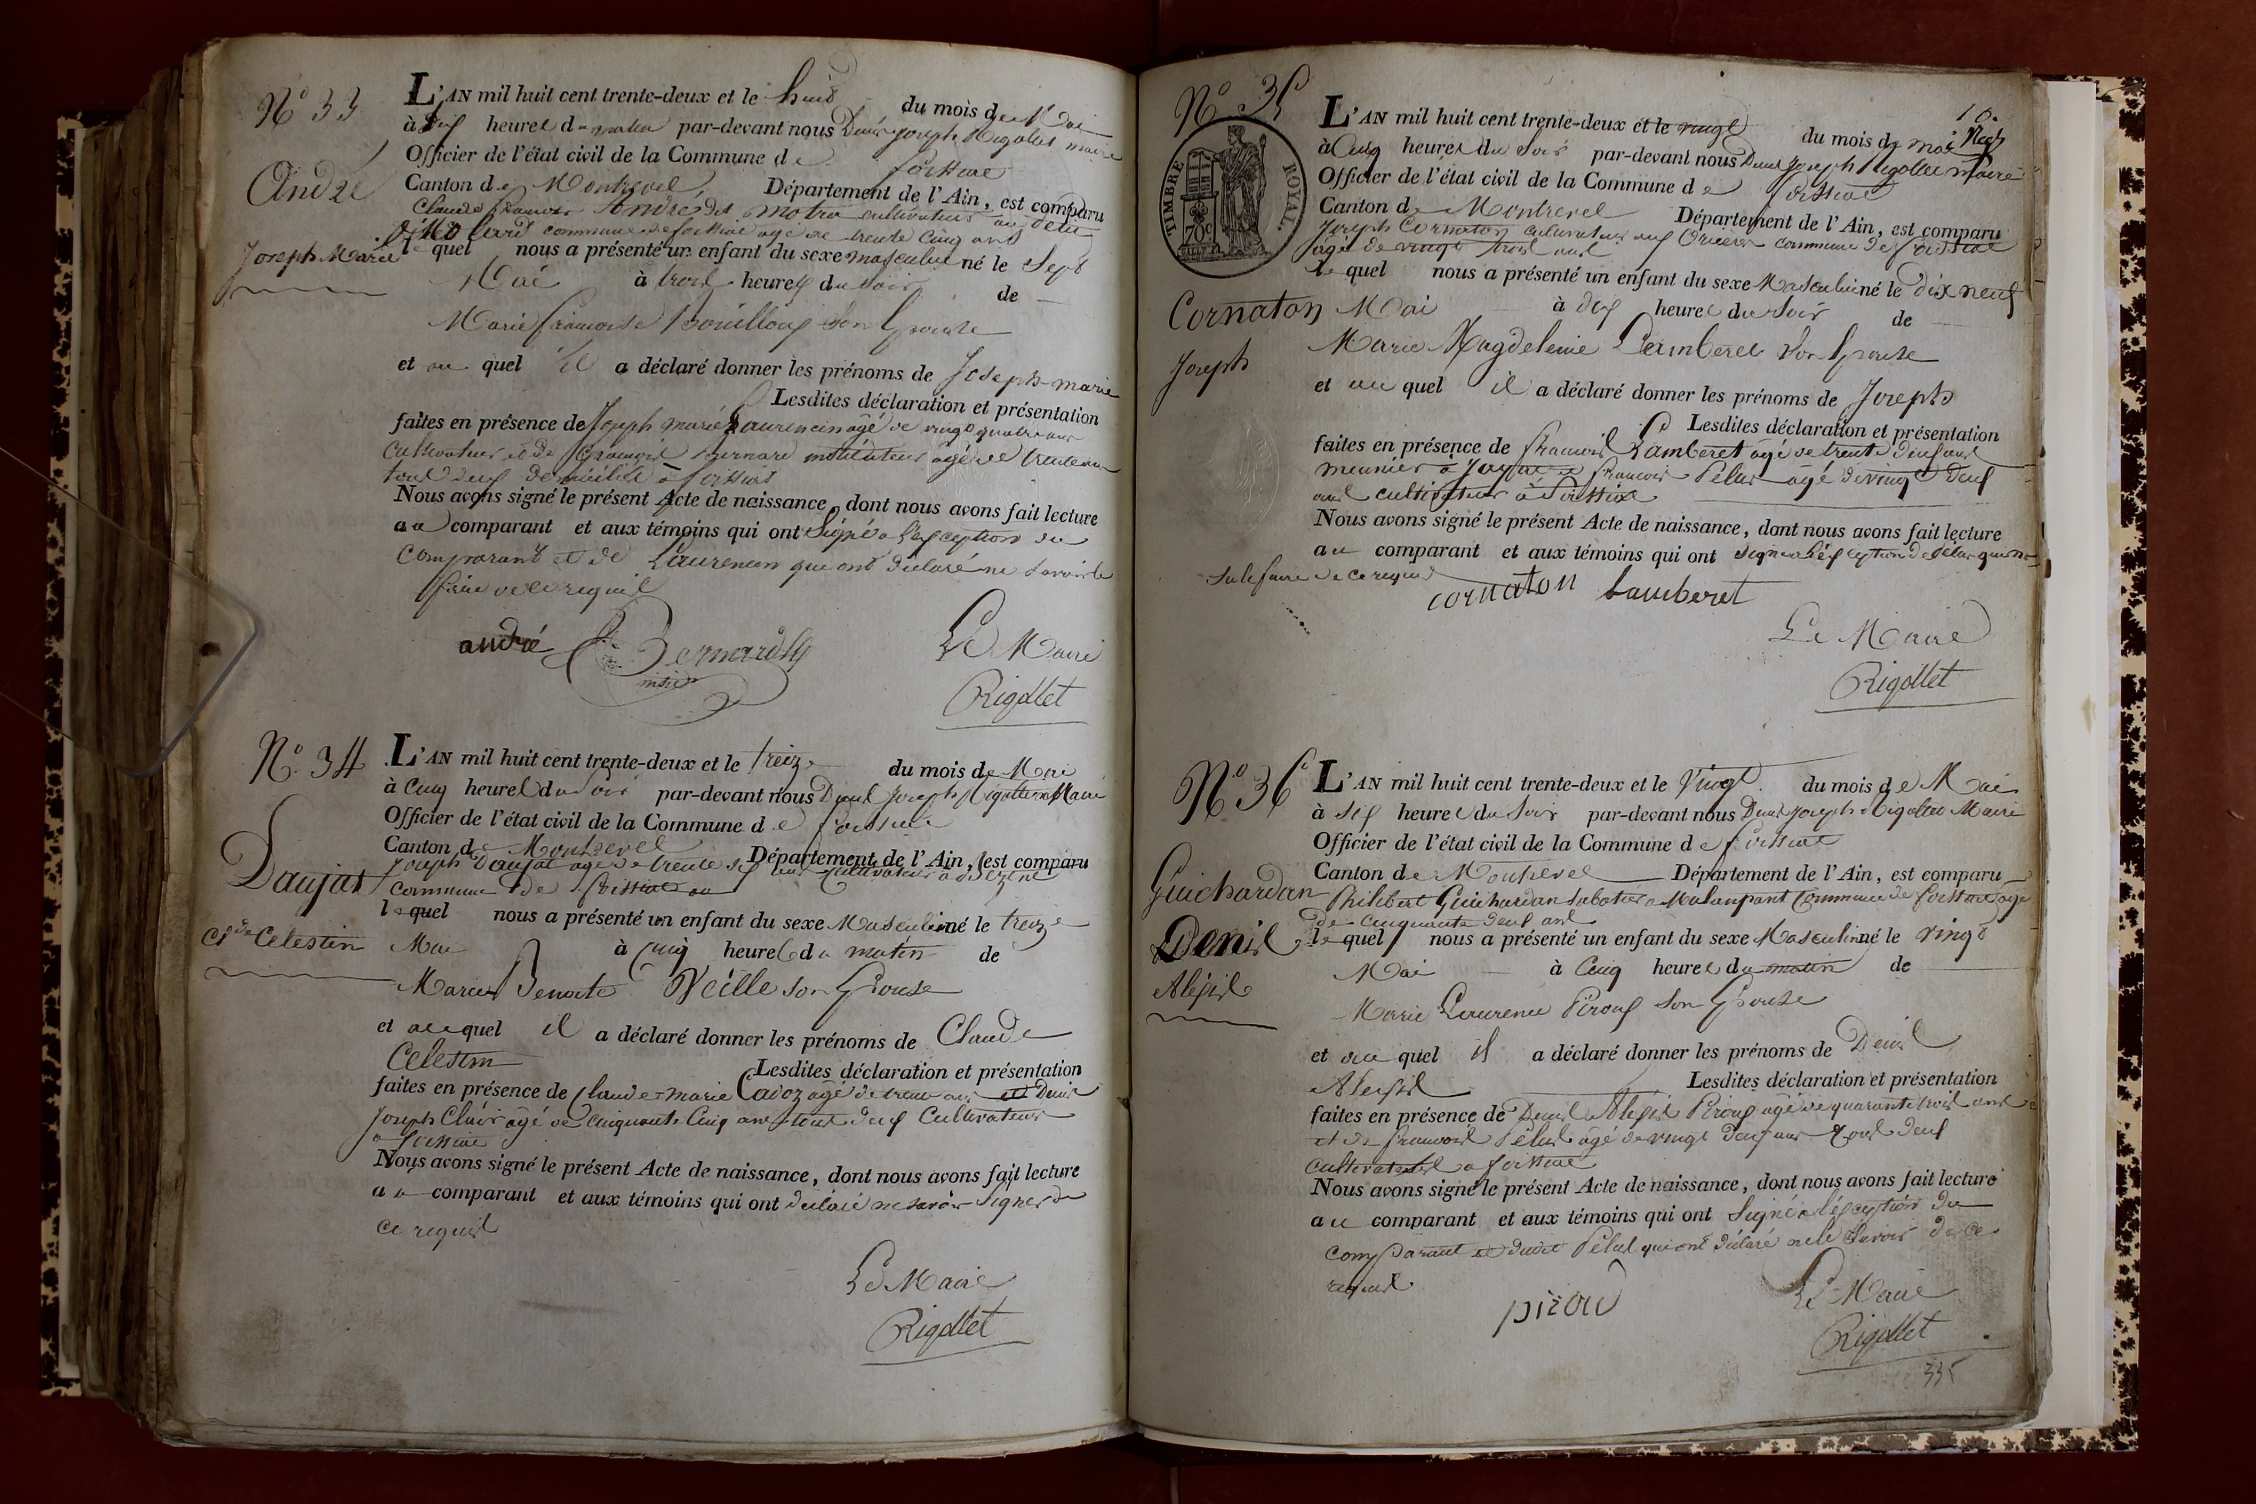 N° 33
André
Joseph Marie
L'AN mil huit cent trente-deux et le huit du mois de Mai
à dix heures du matin par-devant nous Denis Joseph Rigollet maire
Officier de l'état civil de la Commune de foissiat
Canton de Montrevel, Département de l'Ain, est comparu
Claude françois André dit motra cultivateur au
commune de foissiat agé de trente cinq ans
le quel nous a présenté un enfant du sexe masculin né le Sept
Mai à trois heures du soir de
Marie françoise Bouilloux son Epouse
et au quel il a déclaré donner les prénoms de Joseph-marie
Lesdites déclaration et présentation
faites en présence de Joseph marie Laurencin agé de vingt quatre ans
cultivateur et de françois Bernard instituteur agé de trente ans
tous deux domiciliés à foissiat
Nous avons signé le présent Acte de naissance, dont nous avons fait lecture
au comparant et aux témoins qui ont Signé à l'exception du
comparant et de Laurencin qui ont déclaré ne savoir le
faire de ce requis
andré Bernard
Le Maire
Rigollet
N° 34
Daujat
Cde Celestin
L'AN mil huit cent trente-deux et le treize du mois de Mai
à cinq heures du soir par-devant nous Denis Joseph Rigollet Maire
Officier de l'état civil de la Commune de foissiat
Canton de Montrevel Département de l'Ain, est comparu
Joseph Daujat agé de trente six ans cultivateur à
commune de foissiat au
le quel nous a présenté un enfant du sexe Masculin né le treize
Mai à cinq heures du matin de
Marie Benoite Veille son Epouse
et auquel il a déclaré donner les prénoms de Claude
Celestin
Lesdites déclaration et présentation
faites en présence de Claude-marie Cavoz agé de trente ans et Denis
Joseph Clair agé de cinquante cinq ans tous deux Cultivateurs
a foissiat
Nous avons signé le présent Acte de naissance, dont nous avons fait lecture
au comparant et aux témoins qui ont déclaré ne savoir Signer de
ce requis
Le Maire
Rigollet
N° 35
TIMBRE ROYAL
70c
Cornaton
Joseph
10.
L'AN mil huit cent trente-deux et le vingt du mois de mai
à Cinq heures du soir par-devant nous Denis Joseph Rigollet Maire
Officier de l'état civil de la Commune de foissiat
Canton de Montrevel Département de l'Ain, est comparu
Joseph Cornaton cultivateur aux commune de foissiat
agé de vingt trois ans
le quel nous a présenté un enfant du sexe Masculin né le dix neuf
Mai à dix heures du soir de
Marie Magdeleine Lamberet son Epouse
et au quel il a déclaré donner les prénoms de Joseph
Lesdites déclaration et présentation
faites en présence de francois Lamberet agé de trente deux ans
meunier à Jayat et francois Pelus agé de vingt deux
ans cultivateur à foissiat
Nous avons signé le présent Acte de naissance, dont nous avons fait lecture
au comparant et aux témoins qui ont signé a l'exception de Pelus qui ne
sait le faire de ce requis
cornaton Lamberet
Le Maire
Rigollet
N° 36
Guichardan
Denis
Aléxis
L'AN mil huit cent trente-deux et le Vingt du mois de Mai
à six heures du soir par-devant nous Denis Joseph Rigollet Maire
Officier de l'état civil de la Commune de foissiat
Canton de Montrevel Département de l'Ain, est comparu
Philibert Guichardan Sabotier a Malaupant Commune de foissiat agé
de cinquante deux ans
le quel nous a présenté un enfant du sexe Masculin né le vingt
Mai à Cinq heures du matin de
Marie Laurence Piroux son Epouse
et au quel il a déclaré donner les prénoms de Denis
Alexis
Lesdites déclaration et présentation
faites en présence de Denis Alexis Piroux agé de quarante trois ans
et de francois Pelus agé de vingt deux ans tous deux
cultivateurs a foissiat
Nous avons signé le présent Acte de naissance, dont nous avons fait lecture
au comparant et aux témoins qui ont Signé a l'exception du
comparant et dudit Pelus qui ont déclaré ne le Savoir de ce
requis
pirou
Le Maire
Rigollet
335